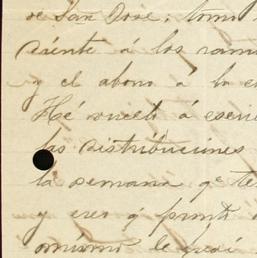 de San José; tomo
ciénte á los ramo
y el abono á lo
He vuelto á escri
las distribuciones
la semana qe te
y creo qe pronto
mismo le